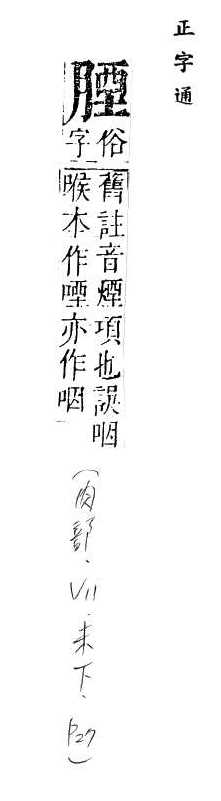 正字通
俗字
舊註音煙項也誤咽
喉本作㖶亦作咽
(肉部、VII、未下、P27)